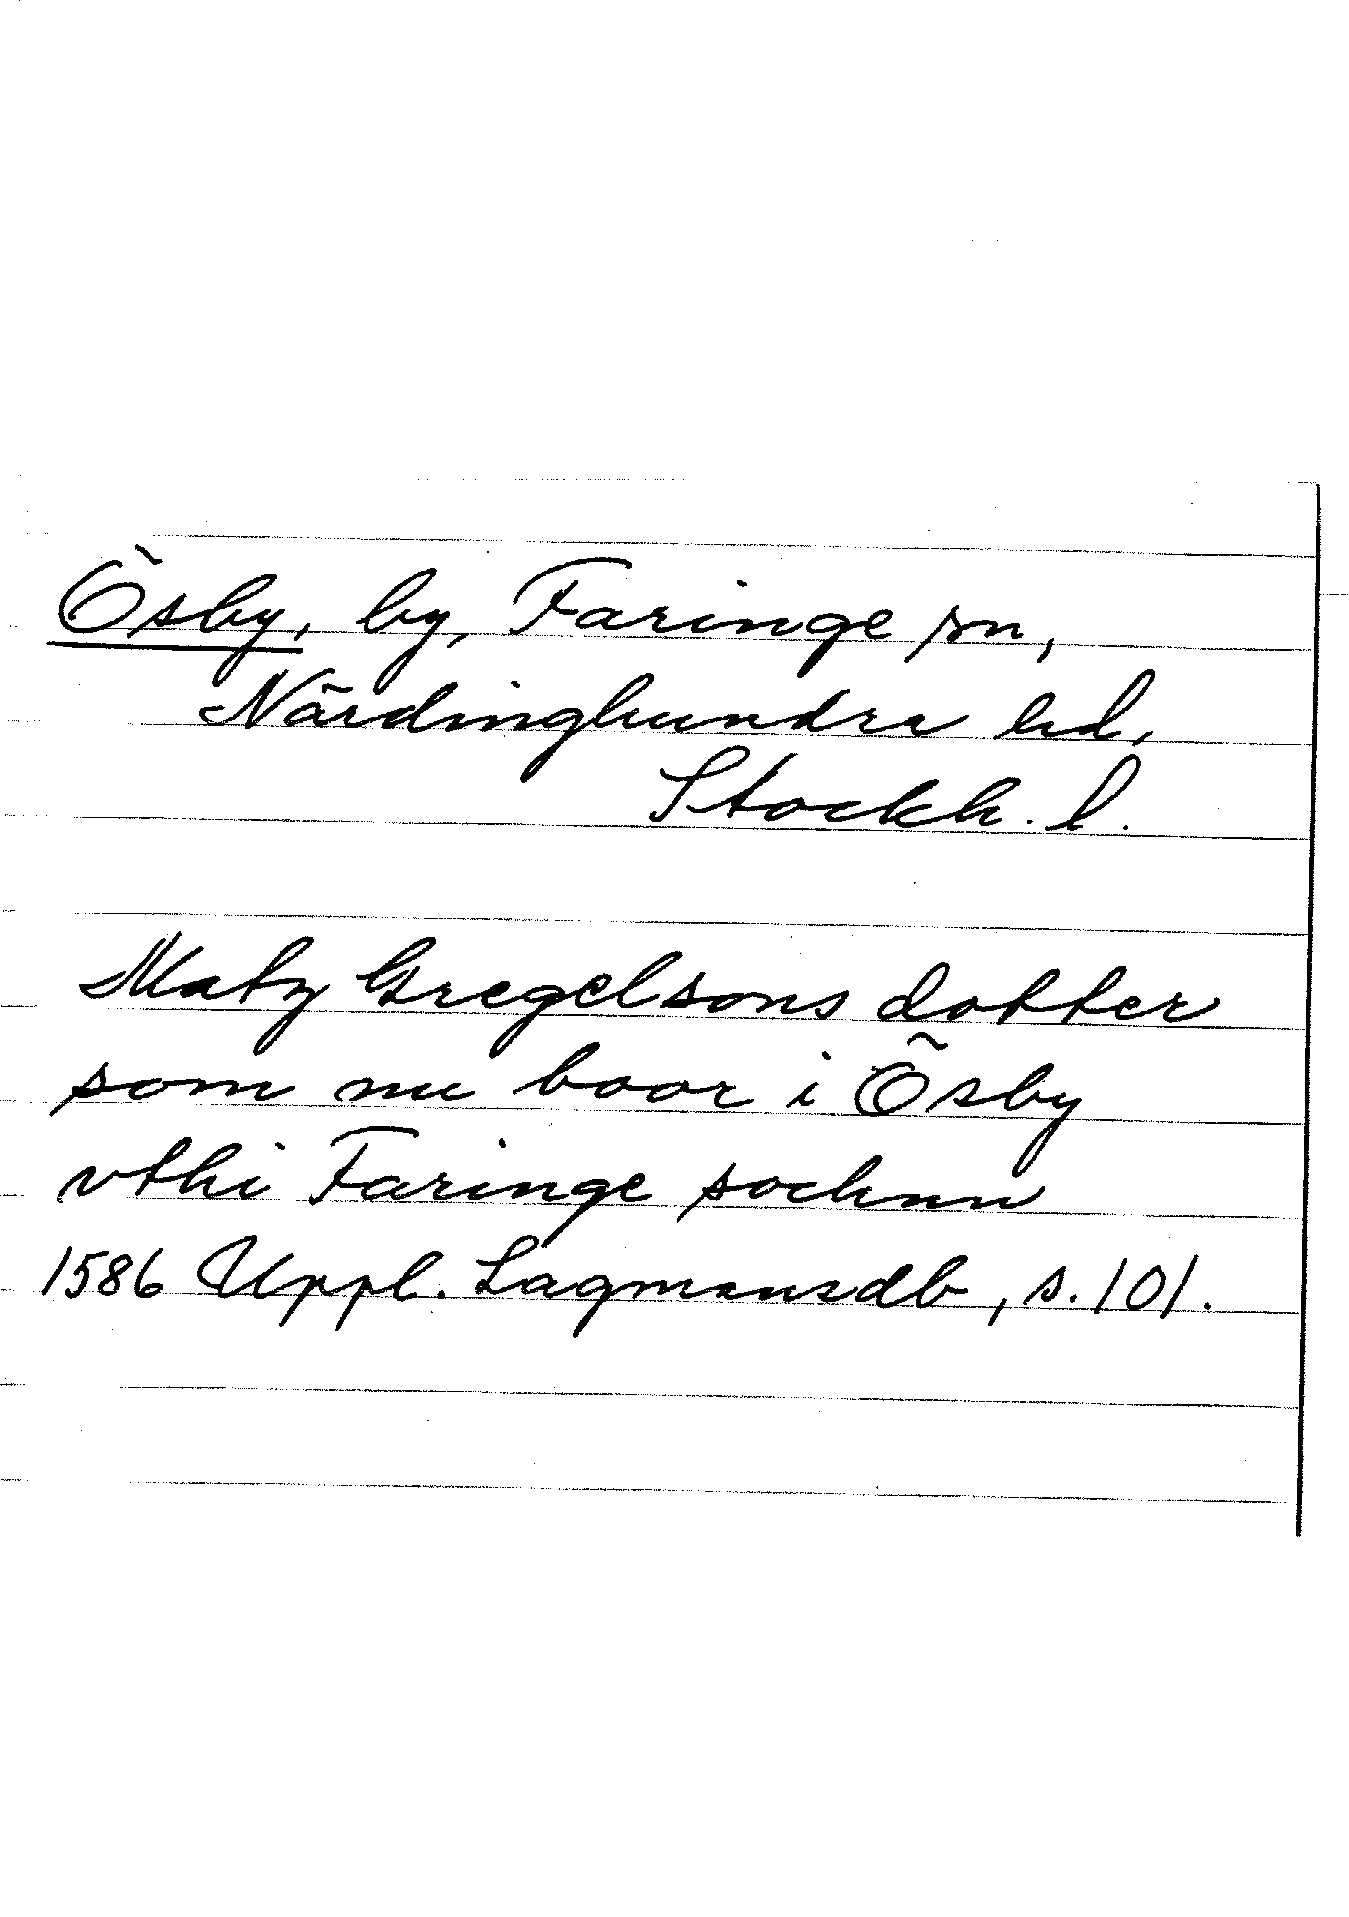 Ösby, by, Faringe sn,
Närdinghundra hd,
Stockh. l.
Matz Gregelsons dotter
som nu boor i Ösby
vthi Faringe sochnn
1586 Uppl. Lagmansdb, s. 101.